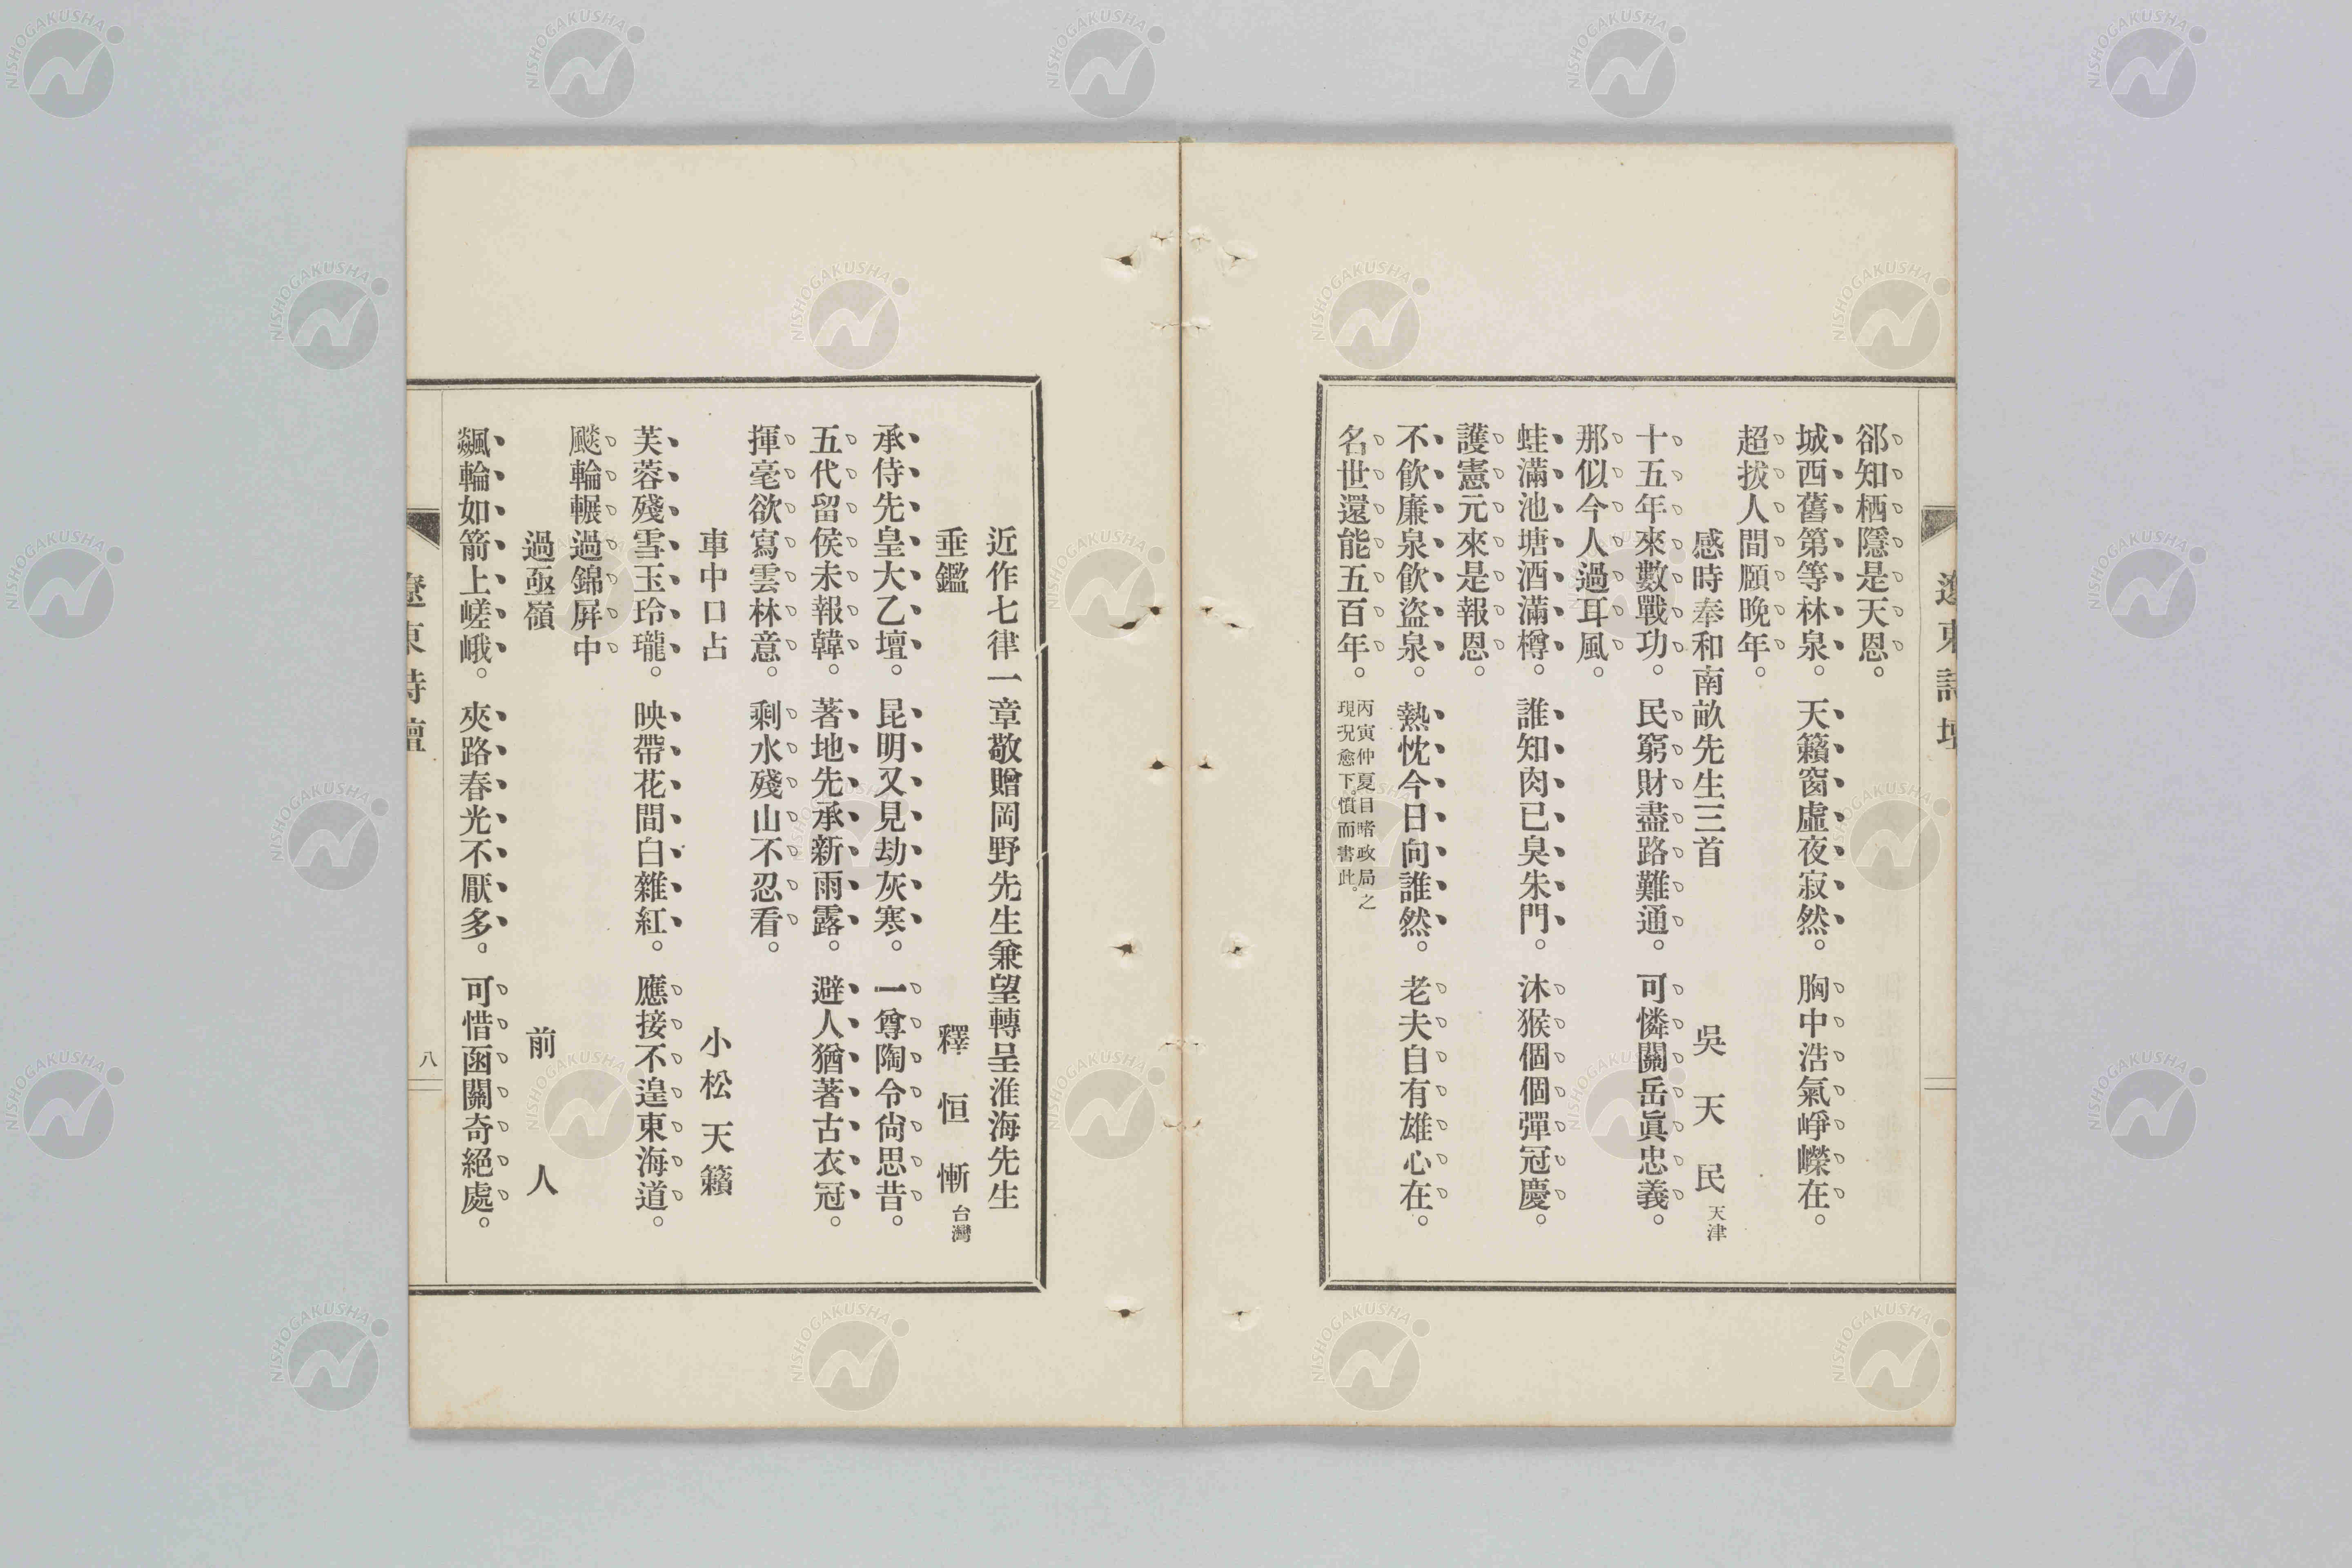 遼東詩壇
郤知栖隱是天恩。
城西舊第等林泉。天籟窗虛夜寂然。胸中浩氣崢嶸在。
超拔人間願晚年。
感時奉和南畝先生三首　吳天民 天津
十五年來數戰功。民窮財盡路難通。可憐關岳眞忠義。
那似今人過耳風。
蛙滿池塘酒滿樽。誰知肉已臭朱門。沐猴個個彈冠慶。
護憲元來是報恩。
不飲廉泉飲盜泉。熱忱今日向誰然。老夫自有雄心在。
名世還能五百年。丙寅仲夏目睹政局之
現況愈下。憤而書此。
近作七律一章敬贈岡野先生兼望轉呈淮海先生
垂鑑　釋恒慚 台灣
承侍先皇大乙壇。昆明又見劫灰寒。一尊陶令尙思昔。
五代留侯未報韓。著地先承新雨露。避人猶著古衣冠。
揮毫欲寫雲林意。剩水殘山不忍看。
車中口占　小松天籟
芙蓉殘雪玉玲瓏。映帶花間白雜紅。應接不遑東海道。
飈輪輾過錦屛中
過亟嶺　前人
飆輪如箭上嵯峨。夾路春光不厭多。可惜函關奇絕處。
遼東詩壇
八
NISHOGAKUSHA